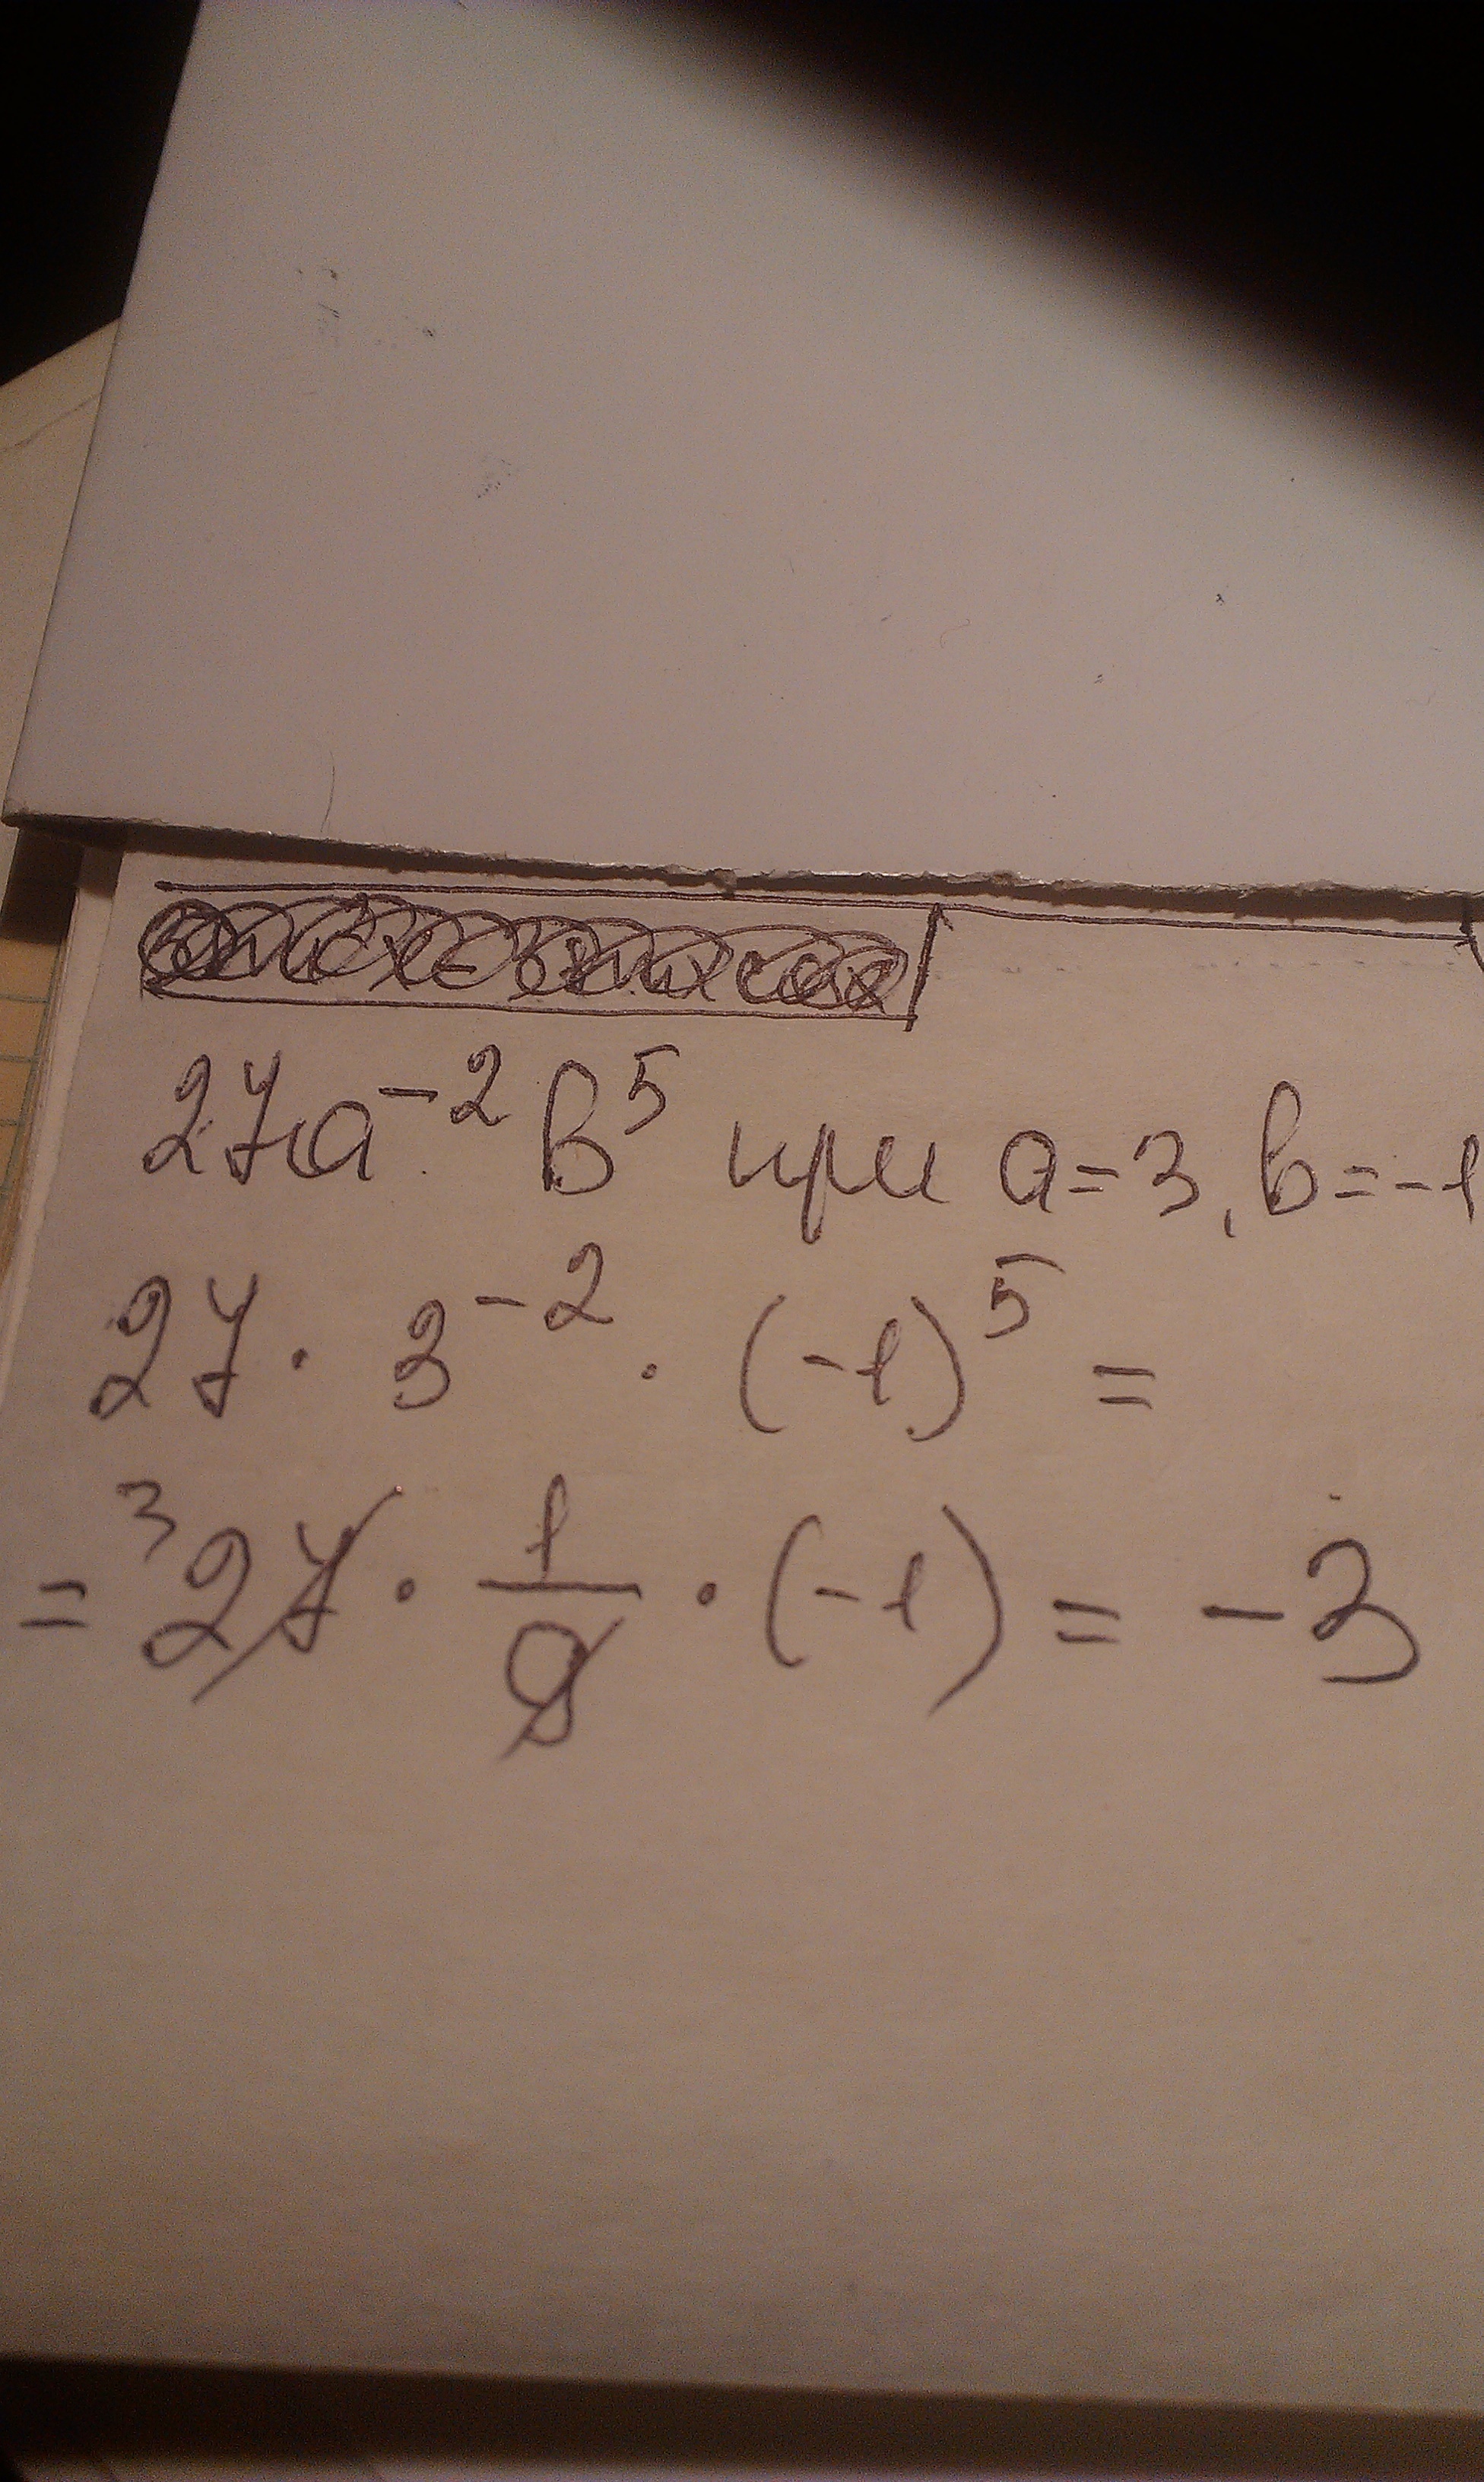 27a⁻²b⁵ при a=3, b=-1
27 · 3⁻² · (-1)⁵ =
= ³27 · 1/9 · (-1) = -3